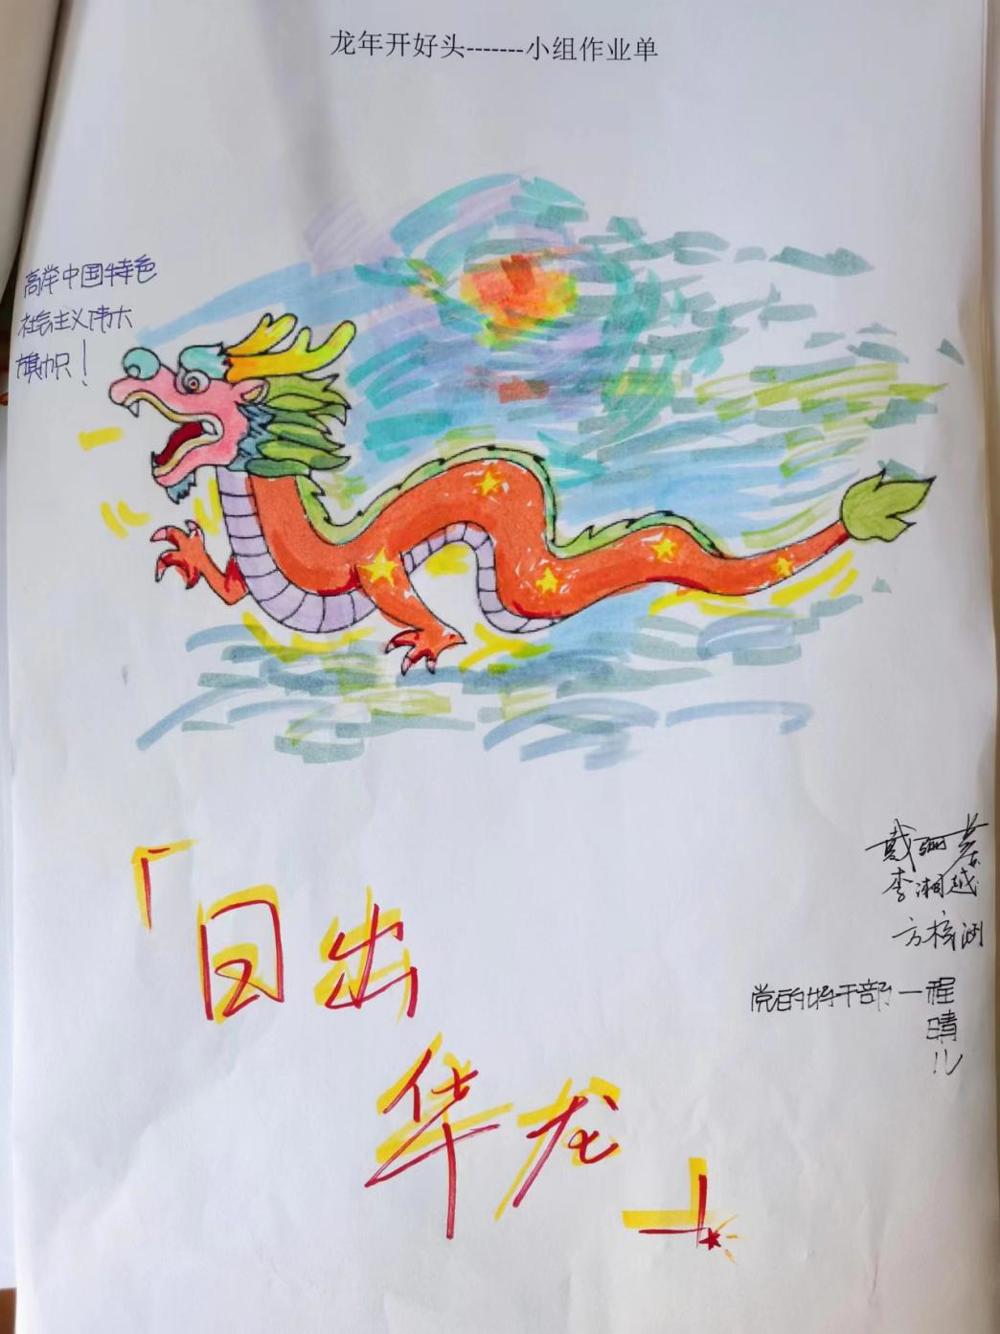 龙年开好头-------小组作业单
高举中国特色
社会主义伟大
旗帜！
「日出
华龙」
李湘越
党的好干部一程
晴
儿